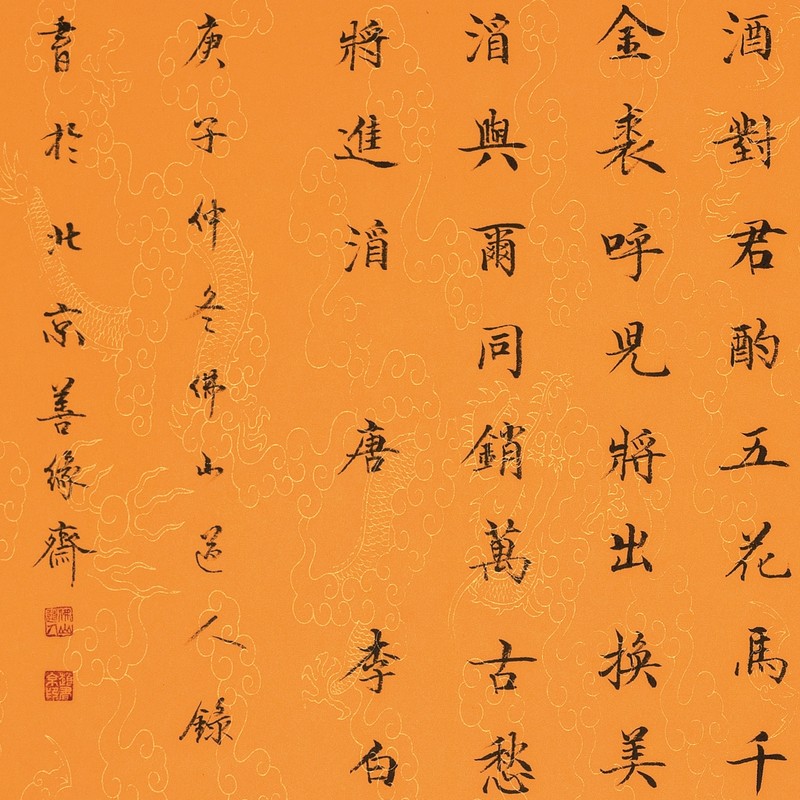 酒對君酌五花馬千
金裘呼兒將出換美
酒與爾同銷萬古愁
將進酒 唐 李白
庚子仲冬佛山道人錄
書於北京善緣齋
佛山道人